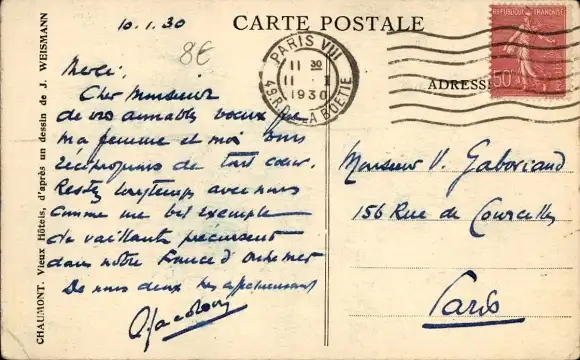 10.1.30
8€
CARTE POSTALE
CHAUMONT. Vieux Hôtels, d'après un dessin de J. WEISMANN
Merci,
Cher Monsieur
de vos aimables voeux que
ma femme et moi vous
réciproquons de tout coeur.
Restez longtemps avec nous
comme un bel exemple
de vaillant précurseur
dans notre France d'
De nous deux
PARIS VIII
11 30
11 - I
1930
49. R. DE LA BOETIE
REPUBLIQUE FRANÇAISE
50
ADRESSE
Monsieur V. Gaboriaud
156 Rue de Courcelles
Paris